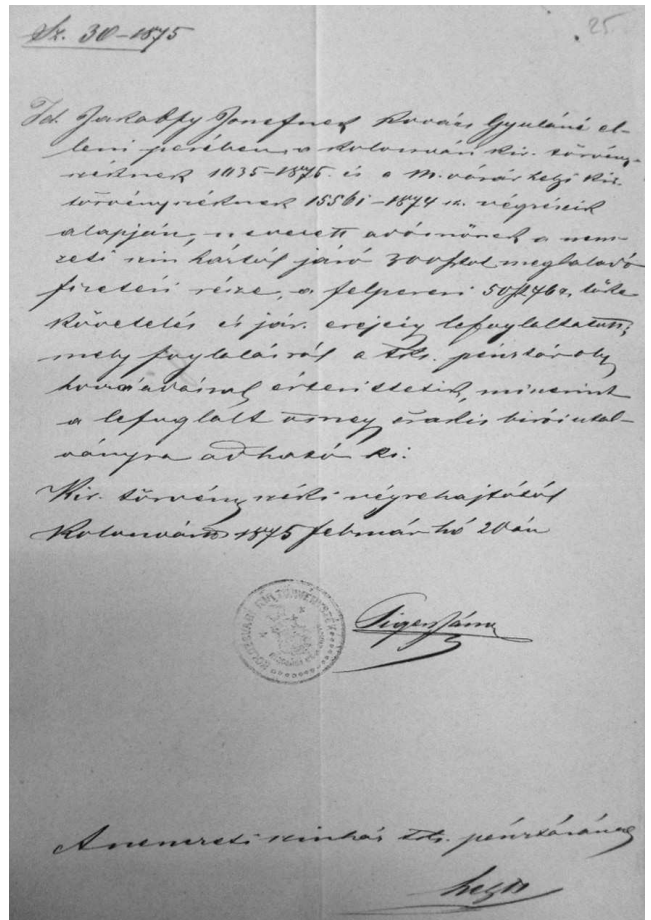 25.
Sz. 30–1875
Id. Jakabfy Josefnek Kovács Gyuláné el-
leni perében, a kolosvári kir. törvény-
széknek 1135–1875. és a M.vásárhelyi kir.
törvényszéknek 15561–1874 sz. végzéseik
alapján, nevezett adósnőnek a nem-
zeti szinháztól járó 300 ftot meghaladó
fizetési része, a felperesi 50 ft 46 x. tőke
követelés és jár. erejéig lefoglaltatott;
mely foglalásról a tks. pénztár oly
hozzáadással értesittetik, miszerint
a lefoglált összeg csakis birói utal-
ványra adható ki.
Kir. törvényszéki végrehajtótól
Kolosvártt 1875 február hó 20án
KOLOSVÁRI KIR. TÖRVÉNYSZÉK
János
A nemzeti szinház tks. pénztárának
helyt